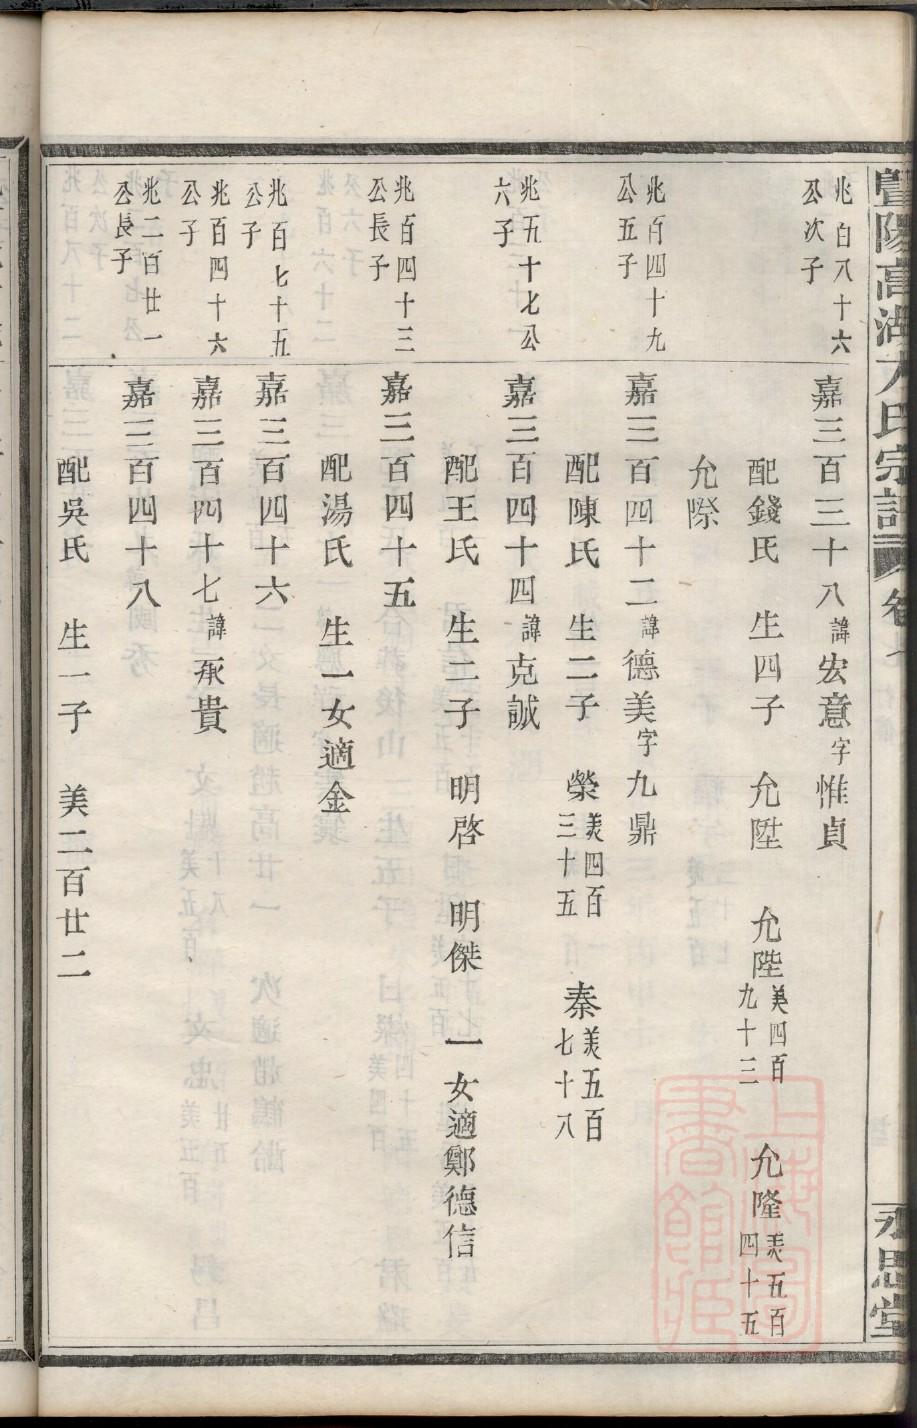 暨陽高湖方氏宗譜 卷
永思堂
兆百八十六
公次子
嘉三百三十八諱宏意字惟貞
配錢氏 生四子 允陞 允陛美四百九十三 允隆美五百四十五
允際
兆百四十九
公五子
嘉三百四十二諱德美字九鼎
配陳氏 生二子 榮美四百三十五 秦美五百七十八
兆五十七公
六子
嘉三百四十四諱克誠
配王氏 生二子 明啓 明傑 一女適鄭德信
兆百四十三
公長子
嘉三百四十五
配湯氏 生一女適金
兆百七十五
公子
嘉三百四十六
兆百四十六
公子
嘉三百四十七諱承貴
兆二百廿一
公長子
嘉三百四十八
配吳氏 生一子 美二百廿二